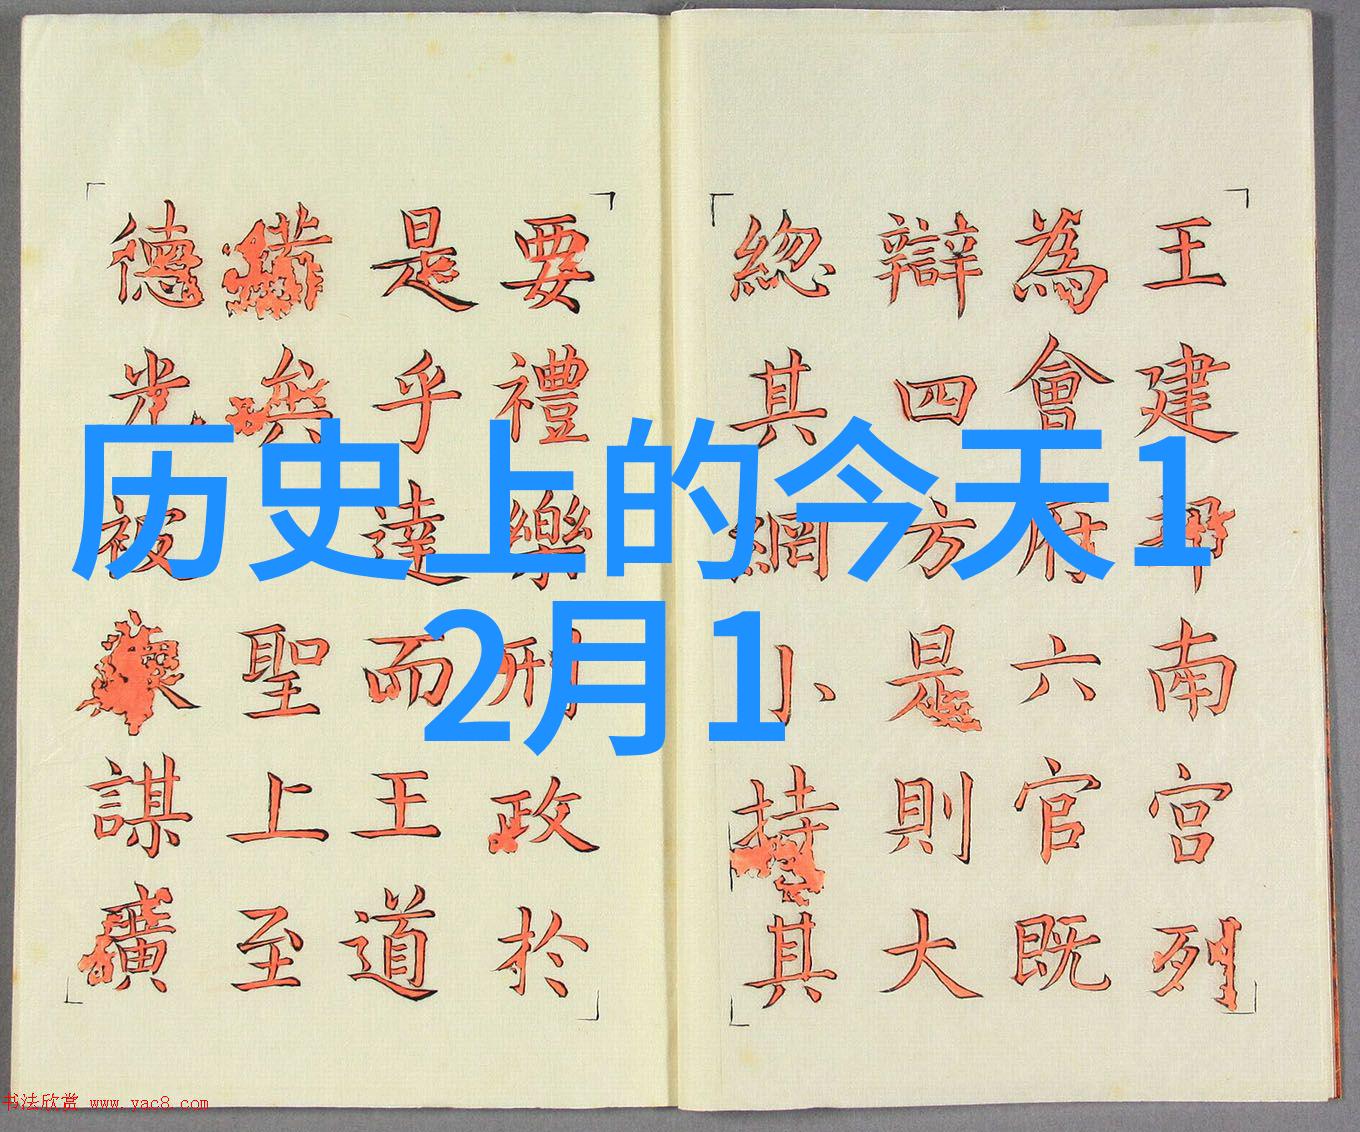 历史上的今天1
2月1
王建南宮列
為會府六官既
辯四方是則大
緫其網小持其
要禮樂刑政於
是乎達而王道
聖上至
德光被謀
书法欣赏 www.yac8.com